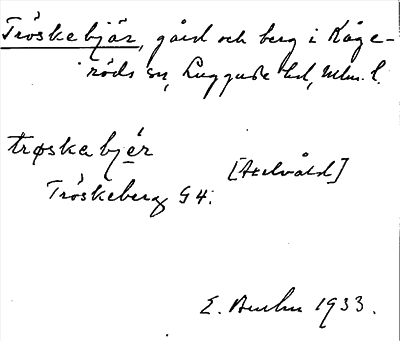 Tröskebjär, gård och berg i Kåge-
röds sn, Luggude hd, Mlm. l.
trøskabjér
[Axelvåld]
Tröskeberg G4.
E. 1933.